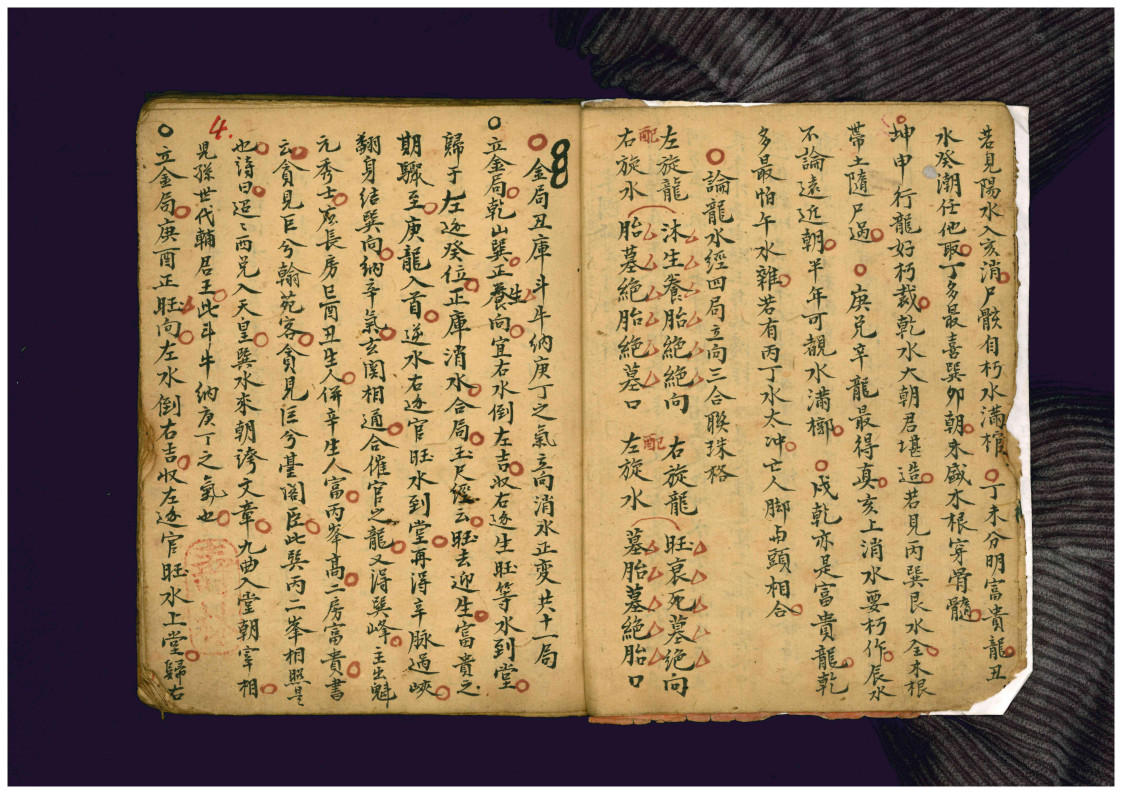 若見陽水入亥消尸骸自朽水滿棺丁未分明富貴龍丑
水癸潮任他取丁多最喜巽卯朝未盛木根穿骨髓
坤申行龍好朽裁乾水大朝君堪造若見丙巽艮水全木根
帶土隨尸過庚兌辛龍最得真亥上消水要朽作辰水
不論遠近朝半年可覩水滿槨戌乾亦是富貴龍乾
多最怕午水雜若有丙丁水太冲亡人脚与頭相合
論龍水經四局立向三合聯珠格
左旋龍沐生養胎絕絕向 右旋龍旺衰死墓絕向
配 配
右旋水胎墓絕胎絕墓口 左旋水墓胎墓絕胎口
8
金局丑庫斗牛納庚丁之氣立向消水正変共十一局
立金局乾山巽正養向宜右水倒左吉收右逐生旺等水到堂
生
歸于左逐癸位正庫消水合局玉尺經云旺去迎生富貴之
期驟至庚龍入首逆水右逐官旺水到堂再得辛脉過峽
翻身結巽向納辛氣玄関相通合催官之龍又得巽峰主出魁
元秀士應長房巳酉丑生人併辛生人富丙峯高二房富貴書
云貪見巨兮翰苑客貪見巨兮臺閣臣此巽丙二峯相照是
也詩曰迢々西兌入天皇巽水來朝誇文章九曲入堂朝宰相
4.
児孫世代輔君王此斗牛納庚丁之氣也
立金局庚酉正旺向左水倒右吉收左逐官旺水上堂歸右